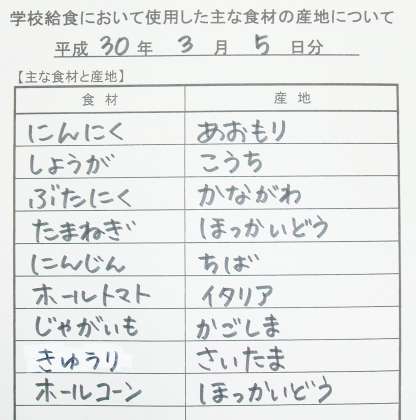 学校給食において使用した主な食材の産地について
平成 30 年 3 月 5 日分
【主な食材と産地】
食材 産地
にんにく あおもり
しょうが こうち
ぶたにく かながわ
たまねぎ ほっかいどう
にんじん ちば
ホールトマト イタリア
じゃがいも かごしま
きゅうり さいたま
ホールコーン ほっかいどう